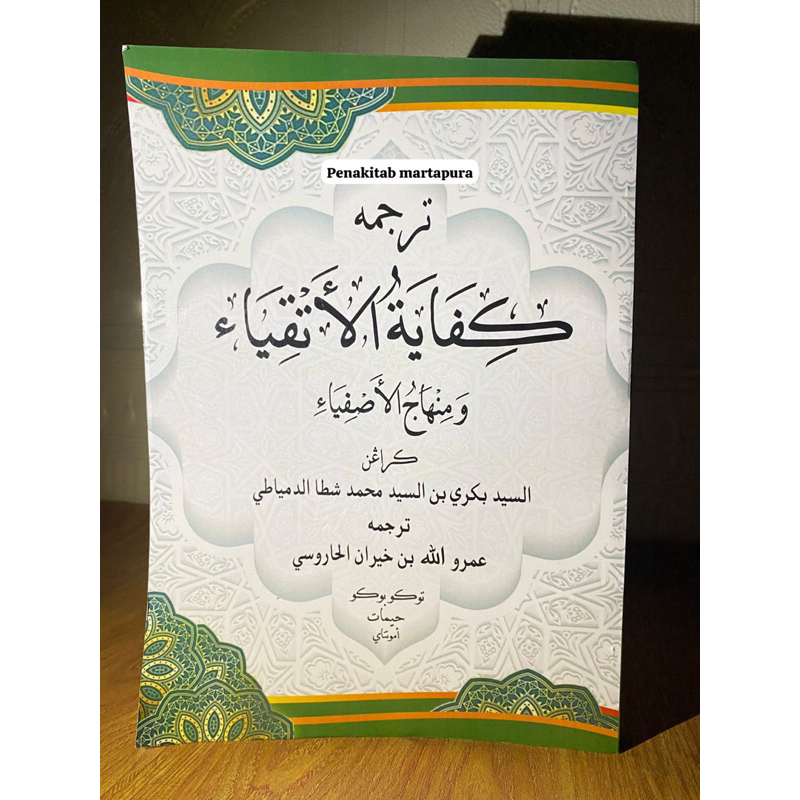 Penakitab martapura
ترجمه
كِفَايَةُ الأَتْقِيَاء
وَمِنْهَاجُ الأَصْفِيَاءِ
كراڠن
السيد بكري بن السيد محمد شطا الدمياطي
ترجمه
عمرو الله بن خيران الحاروسي
توكو بوكو
حيمات
أمونتاي